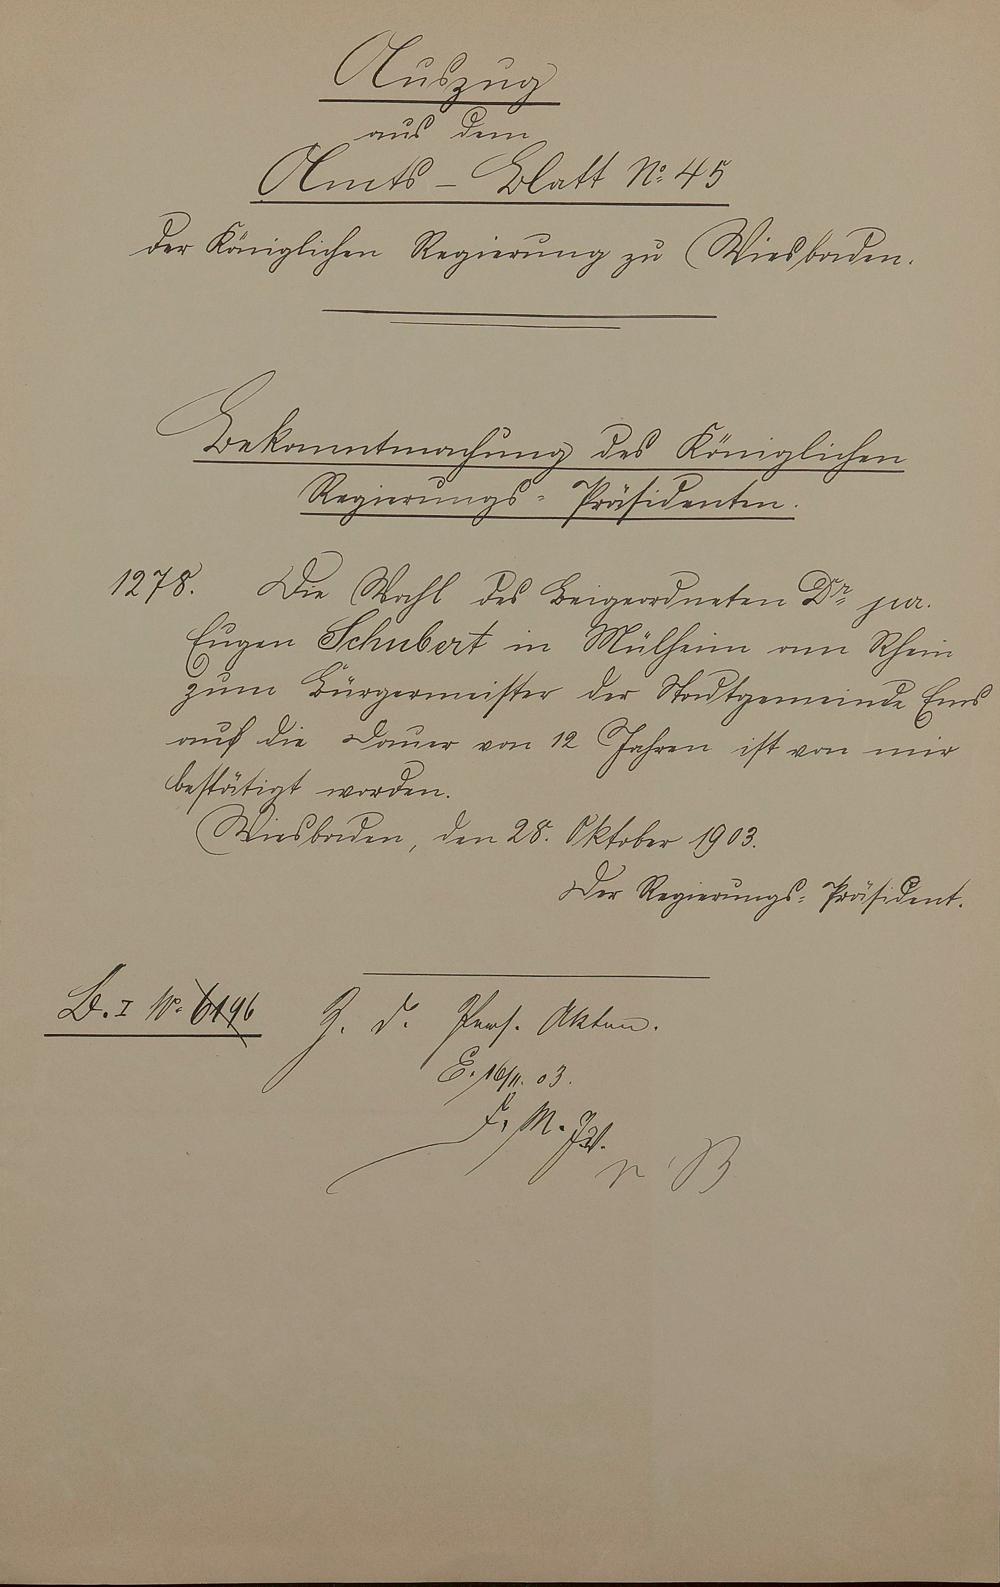 Auszug
aus dem
Amts - Blatt No. 45
der Königlichen Regierung zu Wiesbaden.
Bekanntmachung des Königlichen
Regierungs- Präsidenten.
1278. Die Wahl des Beigeordneten Dr. jur.
Eugen Schubert in Mülheim am Rhein
zum Bürgermeister der Stadtgemeinde Ems
auf die Dauer von 12 Jahren ist von mir
bestätigt worden.
Wiesbaden, den 28. Oktober 1903.
Der Regierungs- Präsident.
B. I No. 6196 Z. d. Pers. Akten.
E. 16/11. 03.
D. M.